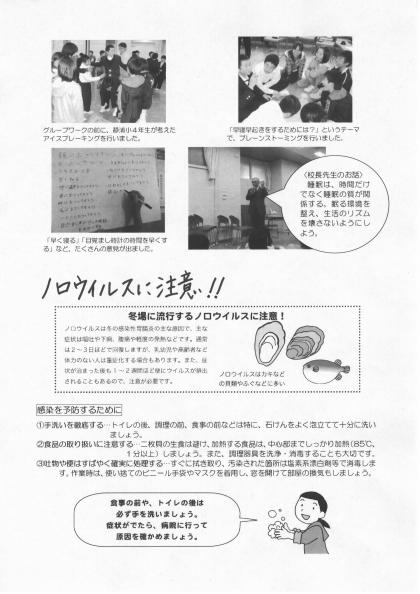 グループワークの前に、都浦小4年生が考えた
アイスブレーキングを行いました。
「早寝早起きをするためには?」というテーマ
で、ブレーンストーミングを行いました。
「早く寝る」「目覚まし時計の時間を早くす
る」など、たくさんの意見が出ました。
〈校長先生のお話〉
睡眠は、時間だけ
でなく睡眠の質が関
係する。眠る環境を
整え、生活のリズム
を壊さないようにし
よう。
ノロウィルスに注意!!
冬場に流行するノロウイルスに注意!
ノロウイルスは冬の感染性胃腸炎の主な原因で、主な
症状は嘔吐や下痢、腹痛や軽度の発熱などです。通常
は2~3日ほどで回復しますが、乳幼児や高齢者など
体力のない人は重症化する場合もあります。また、症
状が治まった後も1~2週間ほど便にウイルスが排出
されることもあるので、注意が必要です。
ノロウイルスはカキなど
の貝類やふぐなどに多い
感染を予防するために
①手洗いを徹底する…トイレの後、調理の前、食事の前などは特に、石けんをよく泡立てて十分に洗い
ましょう。
②食品の取り扱いに注意する…二枚貝の生食は避け、加熱する食品は、中心部までしっかり加熱(85℃、
1分以上)しましょう。また、調理器具を洗浄・消毒することも大切です。
③吐物や便はすばやく確実に処理する…すぐに拭き取り、汚染された箇所は塩素系漂白剤等で消毒しま
す。作業時は、使い捨てのビニール手袋やマスクを着用し、窓を開けて部屋の換気もしましょう。
食事の前や、トイレの後は
必ず手を洗いましょう。
症状がでたら、病院に行って
原因を確かめましょう。